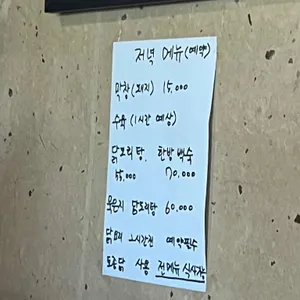 저녁 메뉴(예약)
막창(돼지) 15.000
수육(1시간 예상)
닭도리탕. 한방백숙
55.000 70.000
묵은지 닭도리탕 60.000
닭요리 2시간전 예약필수
토종닭 사용 전메뉴 식사가능